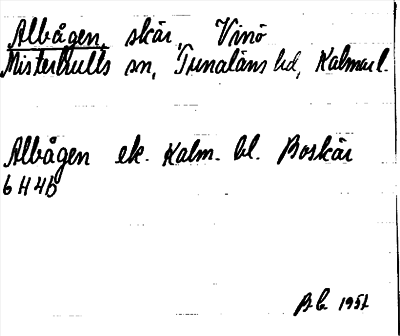 Albågen, skär, Vinö
Misterhults sn, Tunaläns hd, Kalmar l.
Albågen ek. Kalm. bl. Boskär
6 H 4b
1951